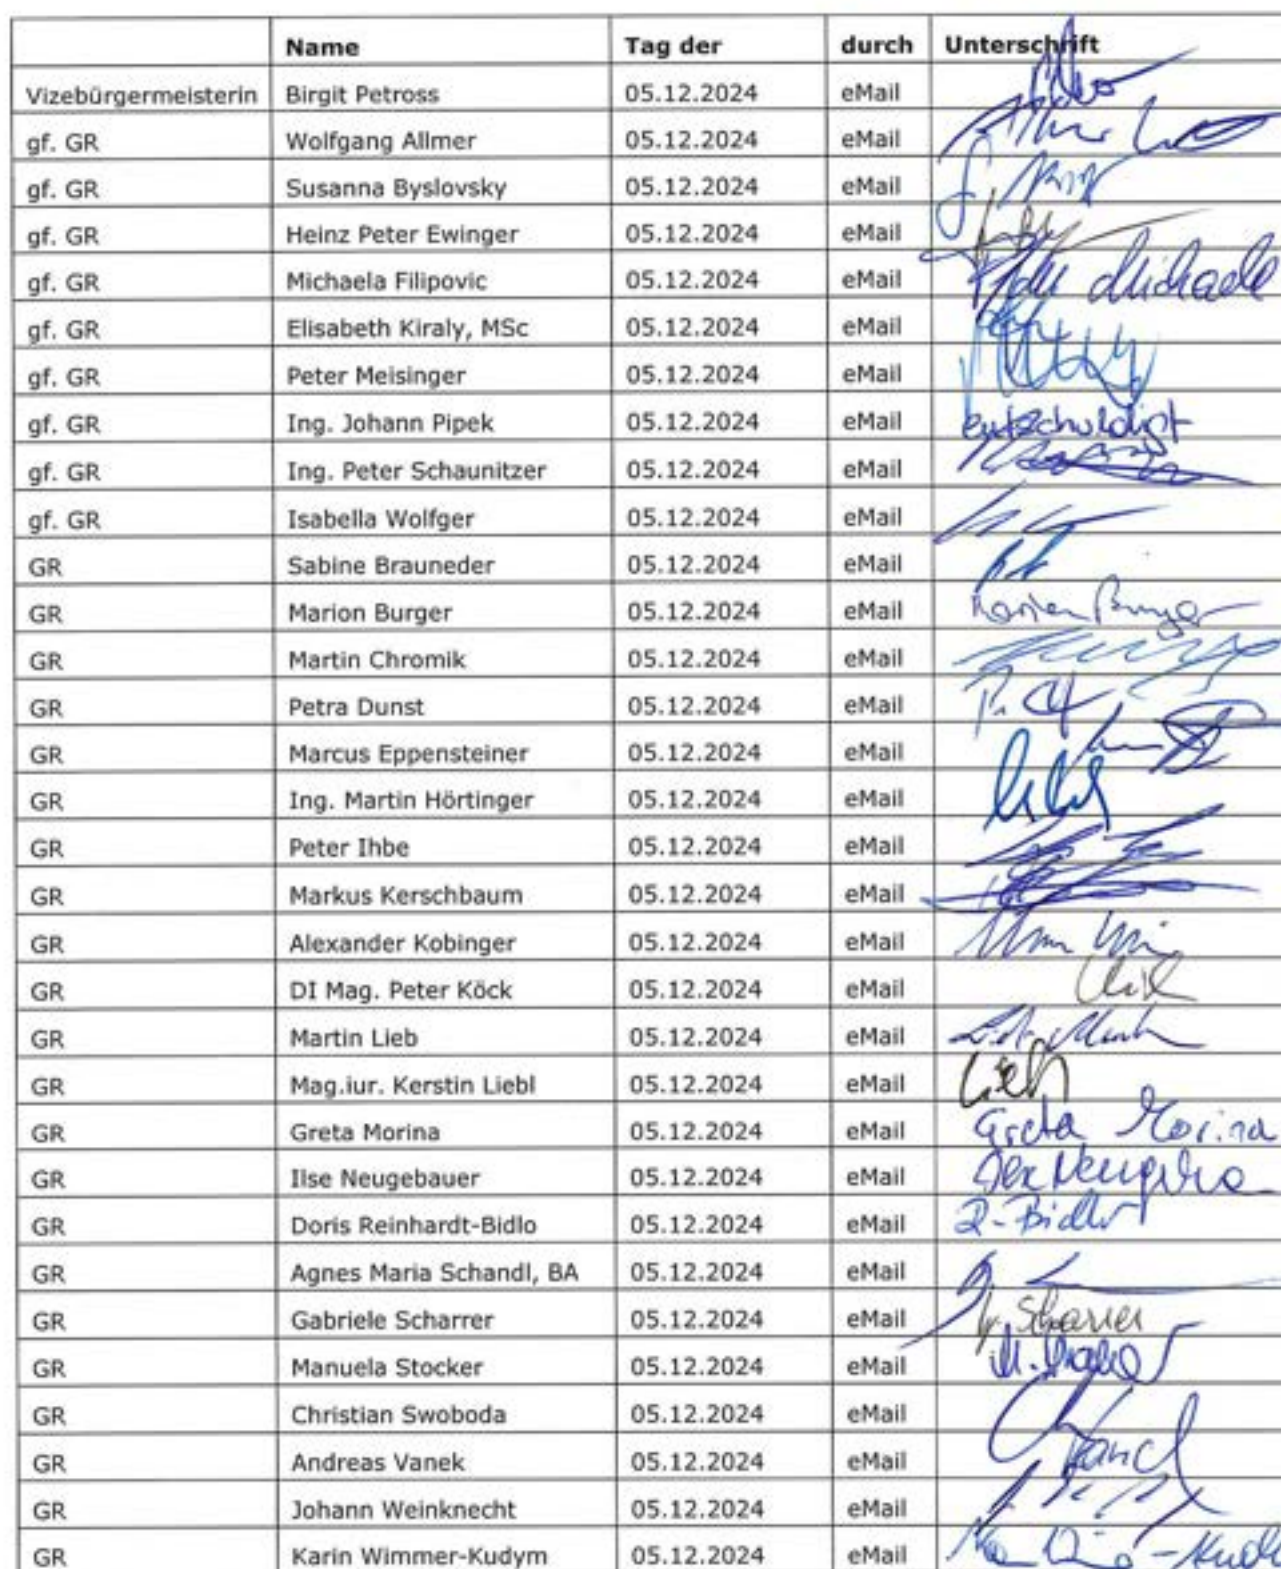 Name Tag der durch Unterschrift
Vizebürgermeisterin Birgit Petross 05.12.2024 eMail
gf. GR Wolfgang Allmer 05.12.2024 eMail
gf. GR Susanna Byslovsky 05.12.2024 eMail
gf. GR Heinz Peter Ewinger 05.12.2024 eMail
gf. GR Michaela Filipovic 05.12.2024 eMail Michaela
gf. GR Elisabeth Kiraly, MSc 05.12.2024 eMail
gf. GR Peter Meisinger 05.12.2024 eMail
gf. GR Ing. Johann Pipek 05.12.2024 eMail entschuldigt
gf. GR Ing. Peter Schaunitzer 05.12.2024 eMail
gf. GR Isabella Wolfger 05.12.2024 eMail
GR Sabine Brauneder 05.12.2024 eMail
GR Marion Burger 05.12.2024 eMail Marion Burger
GR Martin Chromik 05.12.2024 eMail
GR Petra Dunst 05.12.2024 eMail
GR Marcus Eppensteiner 05.12.2024 eMail
GR Ing. Martin Hörtinger 05.12.2024 eMail
GR Peter Ihbe 05.12.2024 eMail
GR Markus Kerschbaum 05.12.2024 eMail
GR Alexander Kobinger 05.12.2024 eMail
GR DI Mag. Peter Köck 05.12.2024 eMail
GR Martin Lieb 05.12.2024 eMail
GR Mag.iur. Kerstin Liebl 05.12.2024 eMail
GR Greta Morina 05.12.2024 eMail Greta Morina
GR Ilse Neugebauer 05.12.2024 eMail
GR Doris Reinhardt-Bidlo 05.12.2024 eMail R-Bidlo
GR Agnes Maria Schandl, BA 05.12.2024 eMail
GR Gabriele Scharrer 05.12.2024 eMail Scharrer
GR Manuela Stocker 05.12.2024 eMail
GR Christian Swoboda 05.12.2024 eMail
GR Andreas Vanek 05.12.2024 eMail
GR Johann Weinknecht 05.12.2024 eMail
GR Karin Wimmer-Kudym 05.12.2024 eMail